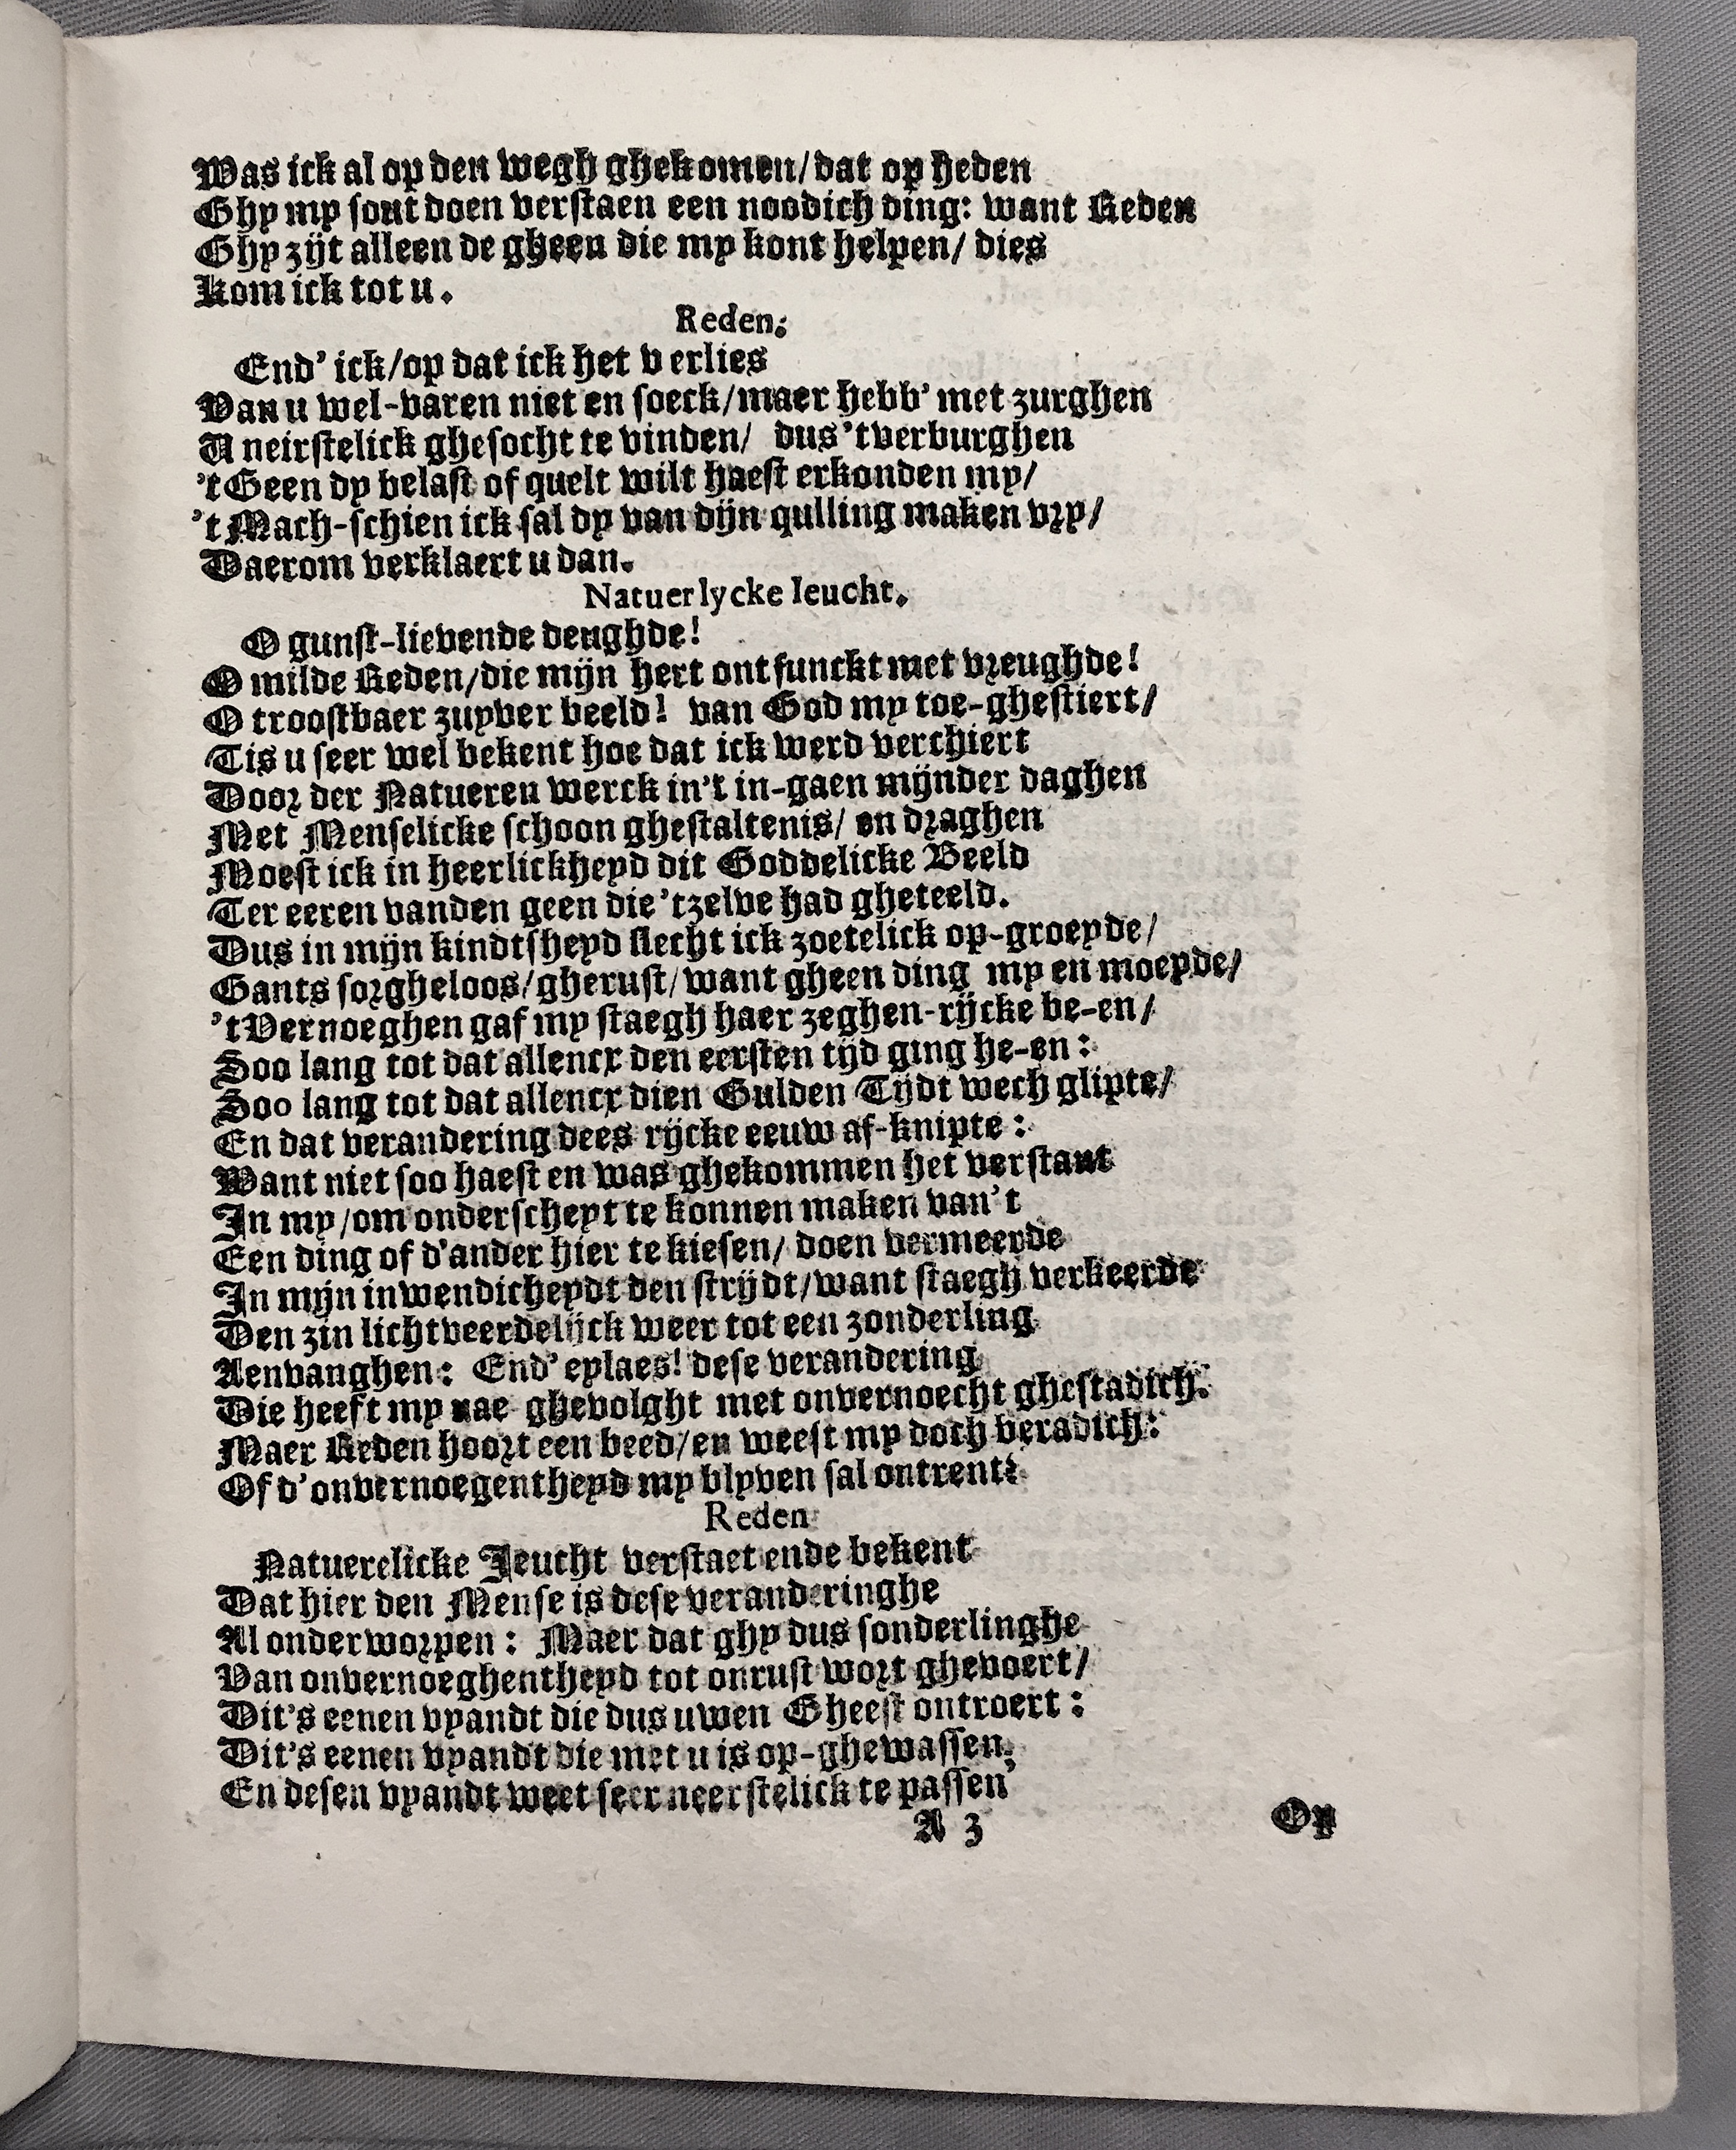 Was ick al op den wegh ghekomen/ dat op heden
Ghy my sout doen verstaen een noodich ding: want Reden
Ghy zijt alleen de gheen die my kont helpen/ dies
Kom ick tot u.
Reden:
End' ick/ op dat ick het verlies
Van u wel-varen niet en soeck/ maer hebb' met zurghen
U neirstelick ghesocht te vinden/ dus 'tverburghen
't Geen dy belast of quelt wilt haest erkonden my/
't Mach-schien ick sal dy van dijn qulling maken vry/
Daerom verklaert u dan.
Natuerlycke Ieucht.
O gunst-lievende deughde!
O milde Reden/ die mijn hert ontfunckt met vreughde!
O troostbaer zuyver beeld! van God my toe-ghestiert/
Tis u seer wel bekent hoe dat ick werd verchiert
Door der Natueren werck in't in-gaen mijnder daghen
Met Menselicke schoon ghestaltenis/ en draghen
Moest ick in heerlickheyd dit Goddelicke Beeld
Ter eeren vanden geen die 'tzelve had gheteeld.
Dus in mijn kindtsheyd slecht ick zoetelick op-groeyde/
Gants sorgheloos/ gherust/ want gheen ding my en moeyde/
't Vernoeghen gaf my staegh haer zeghen-rijcke be-en/
Soo lang tot dat allencx den eersten tijd ging he-en:
Soo lang tot dat allencx dien Gulden Tijdt wech glipte/
En dat verandering dees rijcke eeuw af-knipte:
Want niet soo haest en was ghekommen het verstant
In my/ om onderscheyt te konnen maken van't
Een ding of d'ander hier te kiesen/ doen vermeerde
In mijn inwendicheydt den strijdt/ want staegh verkeerde
Den zin lichtveerdelijck weer tot een zonderling
Aenvanghen: End' eylaes! dese verandering
Die heeft my nae ghevolght met onvernoecht ghestadich.
Maer Reden hoort een beed/ en weest my doch beradich:
Of d'onvernoegentheyd my blyven sal ontrent?
Reden
Natuerelicke Jeucht verstaet ende bekent
Dat hier den Mense is dese veranderinghe
Al onderworpen: Maer dat ghy dus sonderlinghe
Van onvernoeghentheyd tot onrust wort ghevoert/
Dit's eenen vyandt die dus uwen Gheest ontroert:
Dit's eenen vyandt die met u is op-ghewassen;
En desen vyandt weet seer neerstelick te passen
A 3
Op